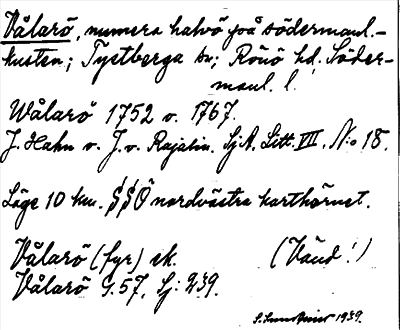 Vålarö, numera halvö på södermanl.-
kusten; Tystberga sn; Rönö hd. Söder-
manl. l.
Wålarö 1752 o. 1767.
J. Hahn o. J. v. Rajalin. SjA. Litt. VIII. N:o 18.
Läge 10 km. SSÖ nordvästra karthörnet.
Vålarö (fyr) ek. (Vänd!)
Vålarö G.57. Sj: 239.
1939.